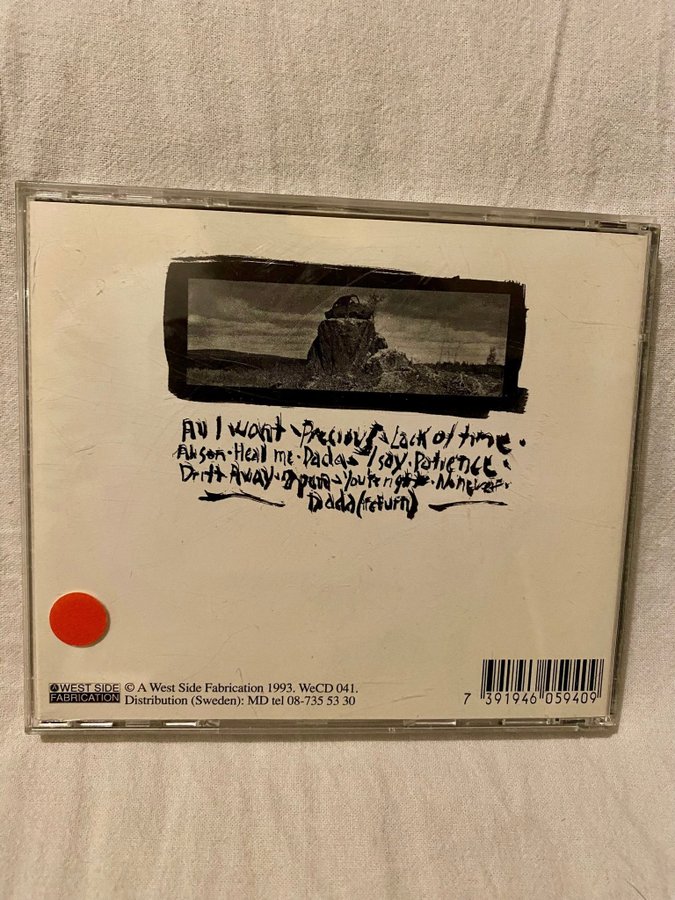 All I want · Precious · Lack of time ·
Alison · Heal me · Dada · I say · Patience ·
Drift Away · 2 para · You're right · No
Dada (return)
WEST SIDE
FABRICATION
© A West Side Fabrication 1993. WeCD 041.
Distribution (Sweden): MD tel 08-735 53 30
7 391946 059409